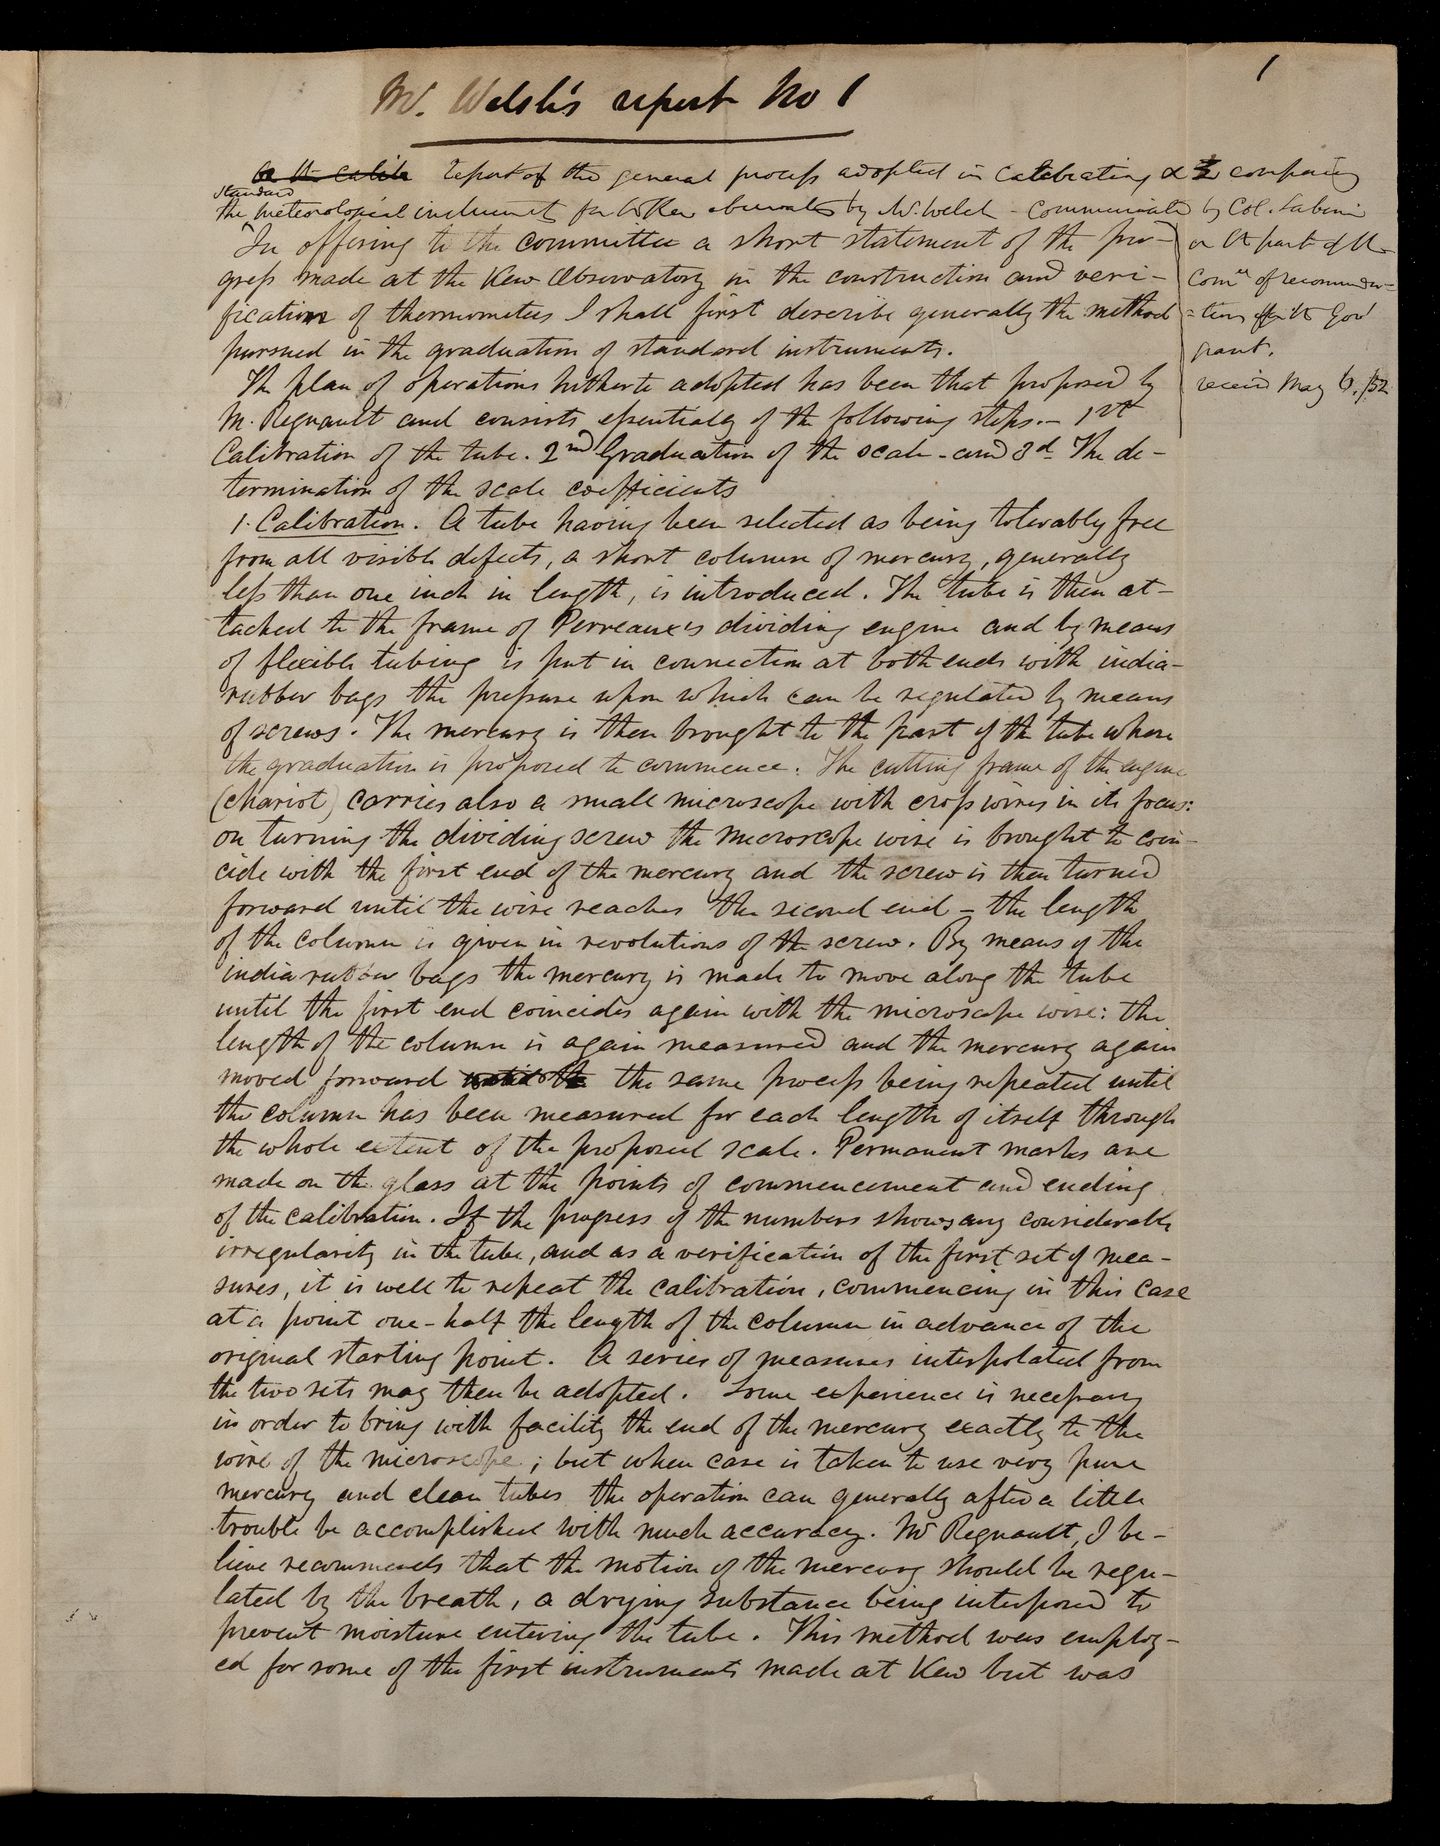 1
Mr. Welsh's report No 1
On the calib Report of the general process adopted in calibrating & comparing
standard
the meteorological instruments for Kew observatory by Mr. Welsh - communicated by Col. Sabine
on the part of the
Comee of recommenda-
-tion of the Govt
grant.
received May 6. /52
In offering to the committee a short statement of the pro-
gress made at the Kew Observatory in the construction and veri-
fication of thermometers I shall first describe generally the method
pursued in the graduation of standard instruments.
The plan of operations hitherto adopted has been that proposed by
M. Regnault and consists essentially of the following steps.- 1st
Calibration of the tube. 2nd Graduation of the scale - and 3d The de-
termination of the scale coefficients
1. Calibration. A tube having been selected as being tolerably free
from all visible defects, a short column of mercury, generally
less than one inch in length, is introduced. The tube is then at-
tached to the frame of Perreaux's dividing engine and by means
of flexible tubing is put in connection at both ends with india-
rubber bags the pressure upon which can be regulated by means
of screws. The mercury is then brought to the part of the tube where
the graduation is proposed to commence. The cutting frame of the engine
(chariot) carries also a small microscope with cross wires in its focus:
on turning the dividing screw the microscope wire is brought to coin-
cide with the first end of the mercury and the screw is then turned
forward until the wire reaches the second end - the length
of the column is given in revolutions of the screw. By means of the
india rubber bags the mercury is made to move along the tube
until the first end coincides again with the microscope wire: the
length of the column is again measured and the mercury again
moved forward until the the same process being repeated until
the column has been measured for each length of itself through
the whole extent of the proposed scale. Permanent marks are
made on the glass at the points of commencement and ending
of the calibration. If the progress of the numbers shows any considerable
irregularity in the tube, and as a verification of the first set of mea-
sures, it is well to repeat the calibration, commencing in this case
at a point one-half the length of the column in advance of the
original starting point. A series of measures interpolated from
the two sets may then be adopted. Some experience is necessary
in order to bring with facility the end of the mercury exactly to the
wire of the microscope; but when care is taken to use very pure
mercury and clean tubes the operation can generally after a little
trouble be accomplished with much accuracy. Mr Regnault, I be-
lieve recommends that the motion of the mercury should be regu-
lated by the breath, a drying substance being interposed to
prevent moisture entering the tube. This method was employ-
ed for some of the first instruments made at Kew but was